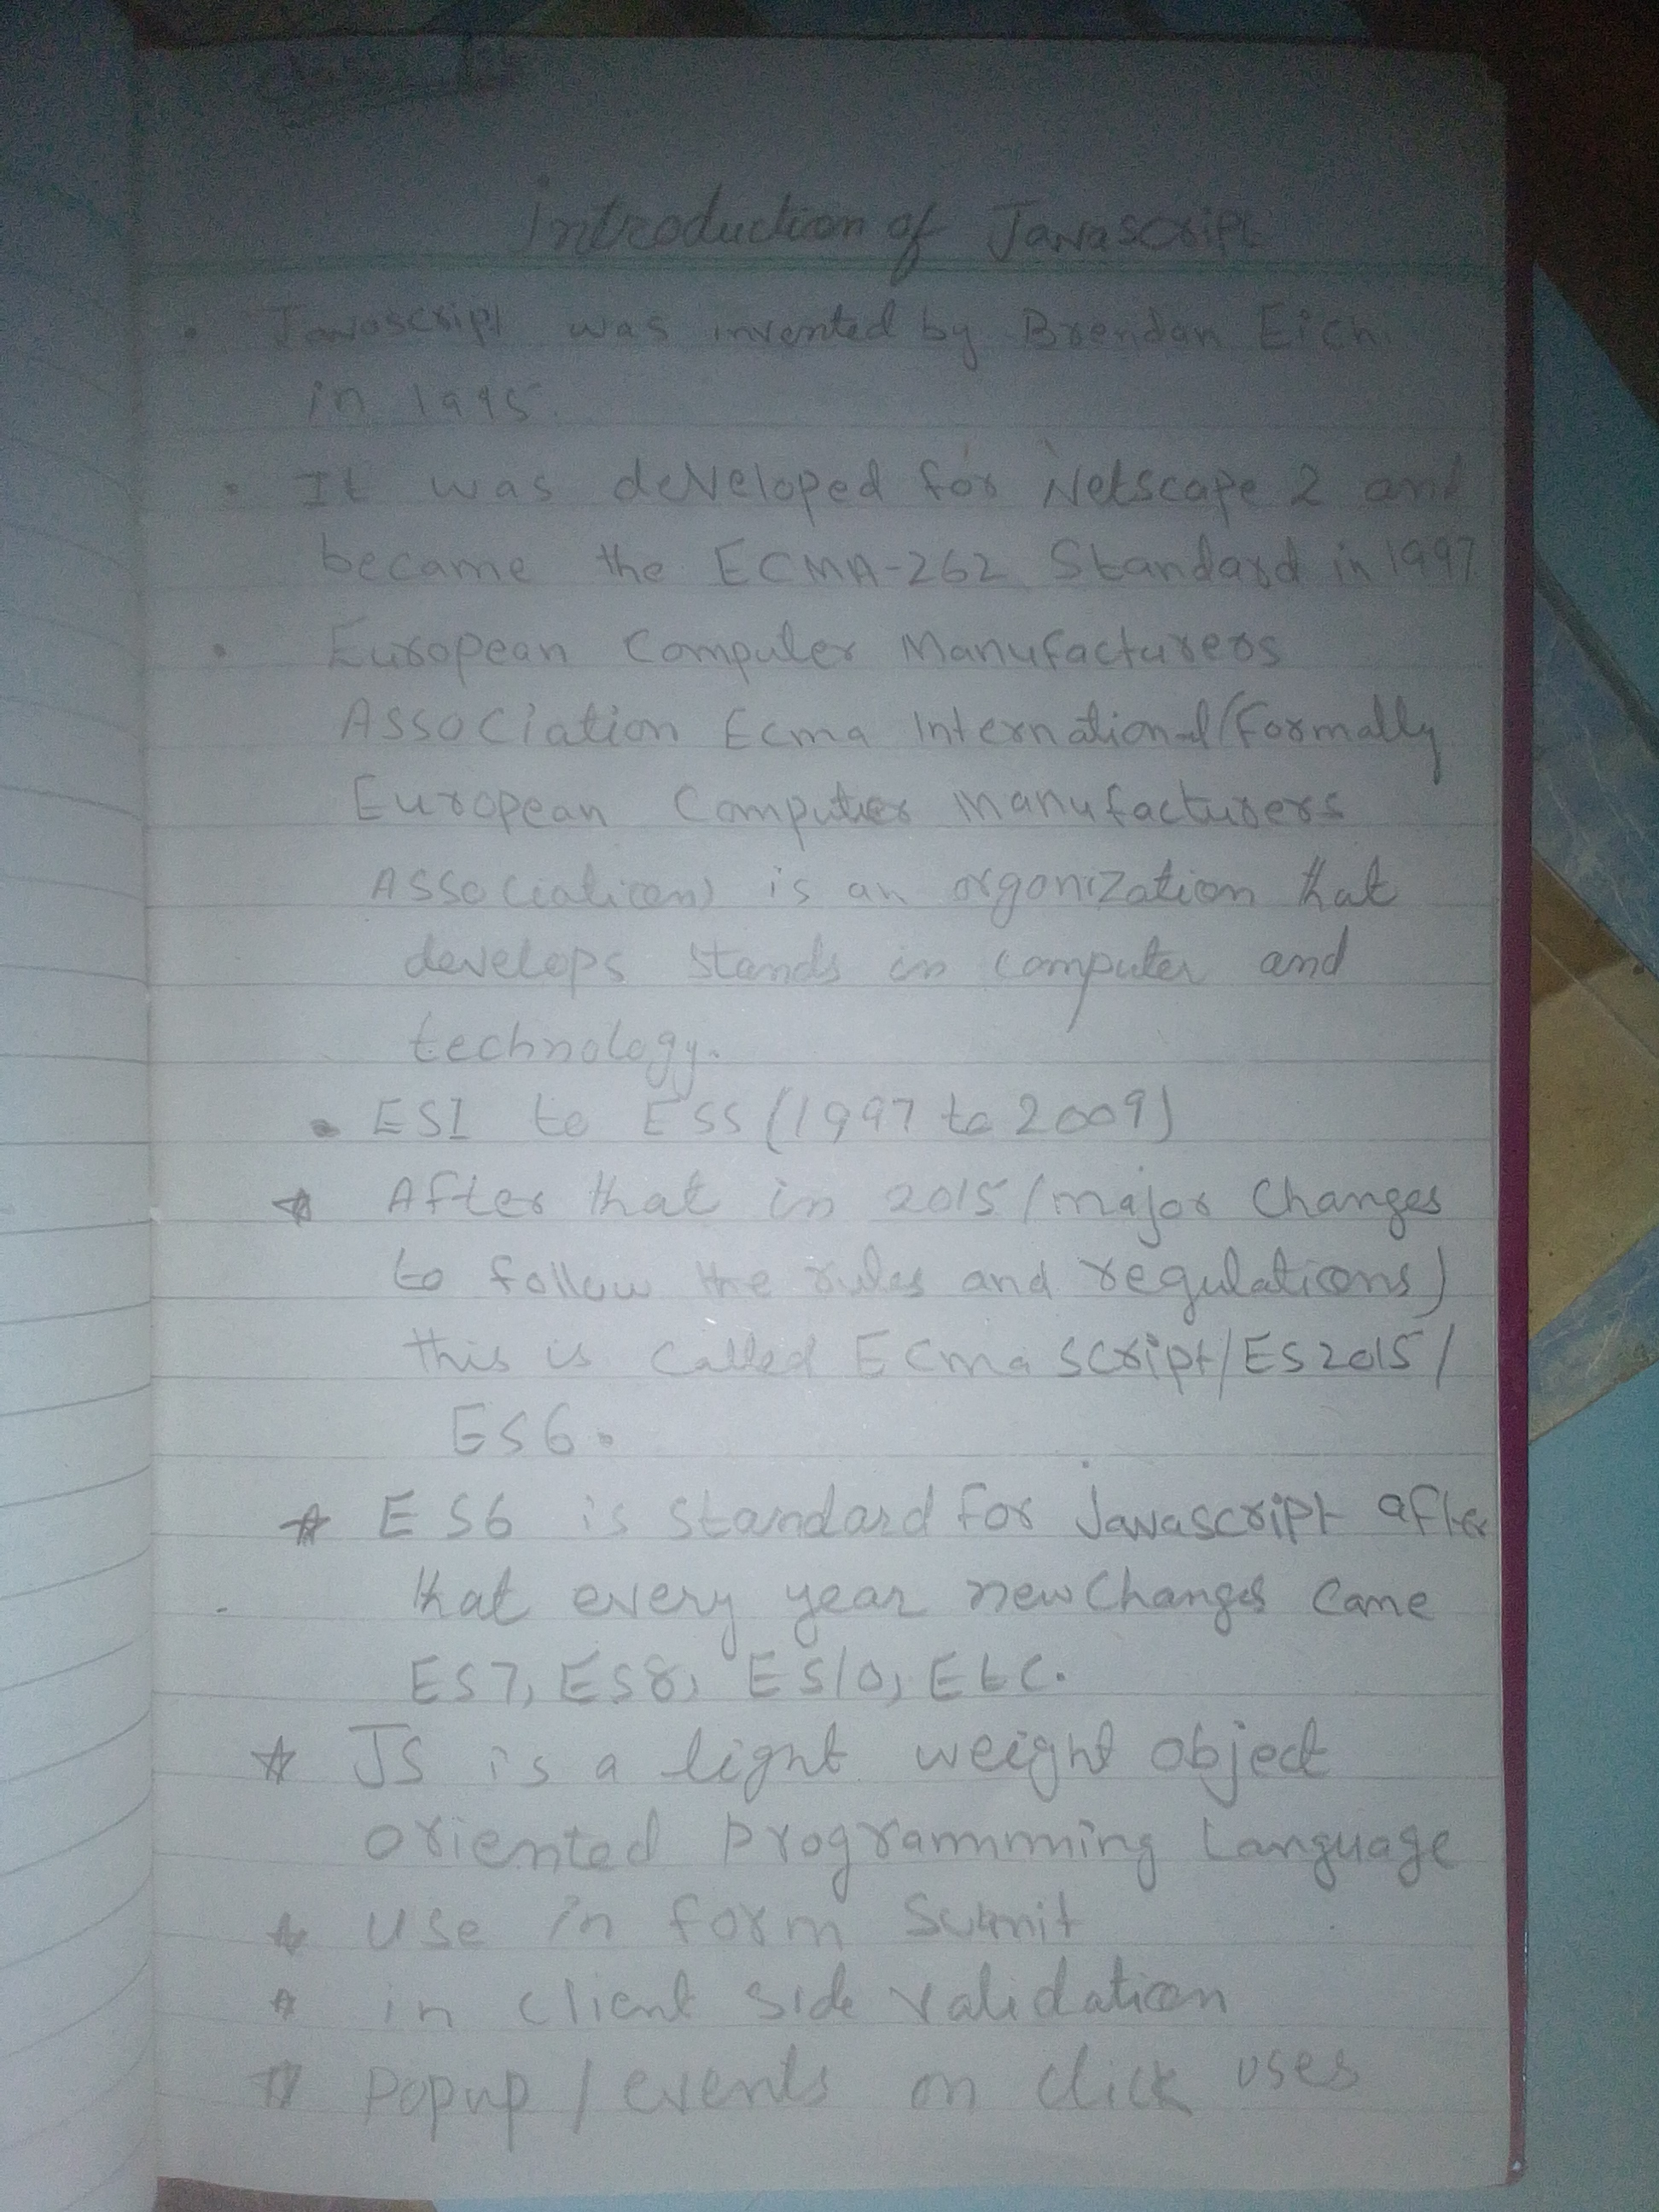 introduction of Javascript
• Javascript was invented by Brendan Eich
in 1995.
• It was developed for Netscape 2 and
became the ECMA-262 Standard in 1997
• European Computer Manufacturers
Association Ecma International (Formally
European Computer Manufacturers
Association) is an orgonization that
develops stands in computer and
technology.
• ES1 to ES5 (1997 to 2009)
☆ After that in 2015 (major changes
to follow the rules and regulations)
this is called Ecma script/ES2015/
ES6.
☆ ES6 is standard for Javascript after
that every year new changes came
ES7, ES8, ES10, Etc.
☆ JS is a light weight object
oriented programmming Language
☆ Use in form Sumit
☆ in client side validation
☆ Popup / events on click uses